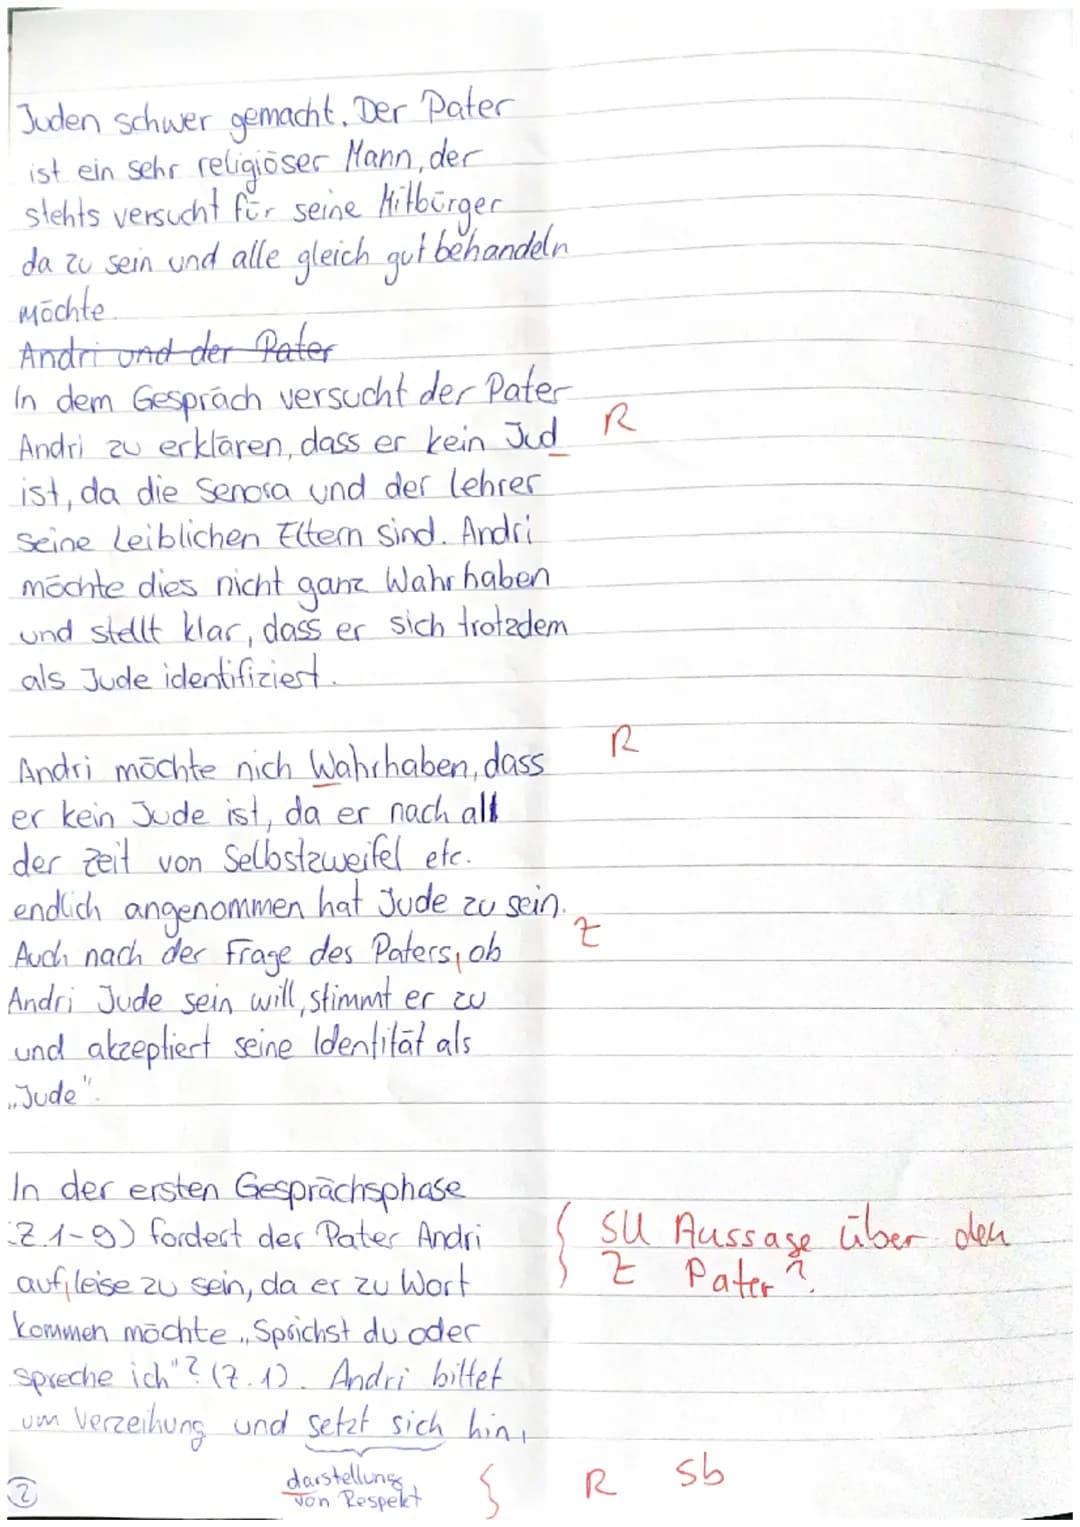 Juden schwer gemacht. Der Pater
ist ein sehr religiöser Mann, der
stehts versucht für seine Mitbürger
da zu sein und alle gleich gut behandeln
möchte.
Andri und der Pater
In dem Gespräch versucht der Pater
Andri zu erklären, dass er kein Jud R
ist, da die Senora und der Lehrer
seine Leiblichen Eltern sind. Andri
möchte dies nicht ganz Wahrhaben
und stellt klar, dass er sich trotzdem
als Jude identifiziert.
Andri möchte nich Wahrhaben, dass R
er kein Jude ist, da er nach all
der Zeit von Selbstzweifel etc.
endlich angenommen hat Jude zu sein.
Auch nach der Frage des Paters, ob Z
Andri Jude sein will, stimmt er zu
und akzeptiert seine Identität als
„Jude".
In der ersten Gesprächsphase
Z.1-9) fordest der Pater Andri SU Aussage über den
auf, leise zu sein, da er zu Wort Z Pater?
kommen möchte „Sprichst du oder
spreche ich"? (Z.1). Andri bittet
um Verzeihung und setzt sich hin,
darstellung
von Respekt
R Sb
2